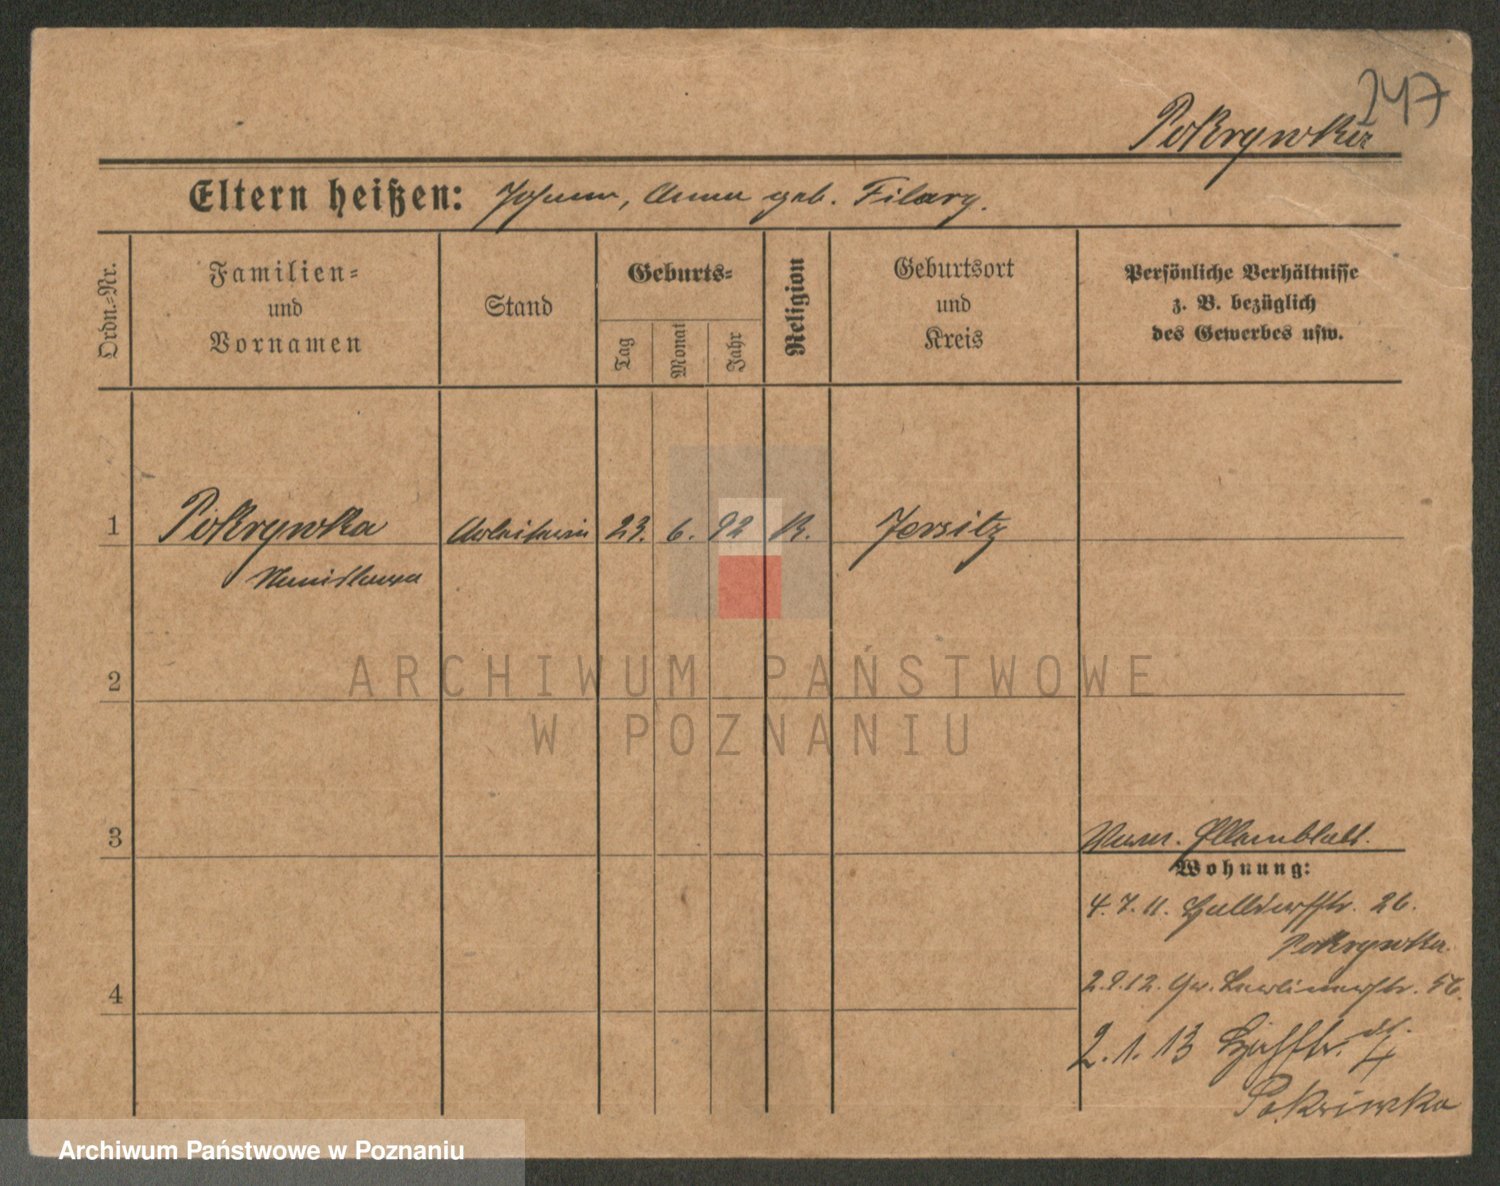 247
Pokrywka
Eltern heißen: Johann, Anna geb. Filary.
Ordn.-Nr.
Familien-
und
Vornamen
Stand
Geburts-
Tag
Monat
Jahr
Religion
Geburtsort
und
Kreis
Persönliche Verhältnisse
z. B. bezüglich
des Gewerbes usw.
1 Pokrywka Arbeiterin 23. 6. 92 K. Jersitz
Stanislawa
2
3
Wohnung:
4. 7. 11. 26.
Pokrywka
4
2.9.12. Gr. Berlinerstr. 56.
2.1.13
Pokriwka
ARCHIWUM PAŃSTWOWE
W POZNANIU
Archiwum Państwowe w Poznaniu